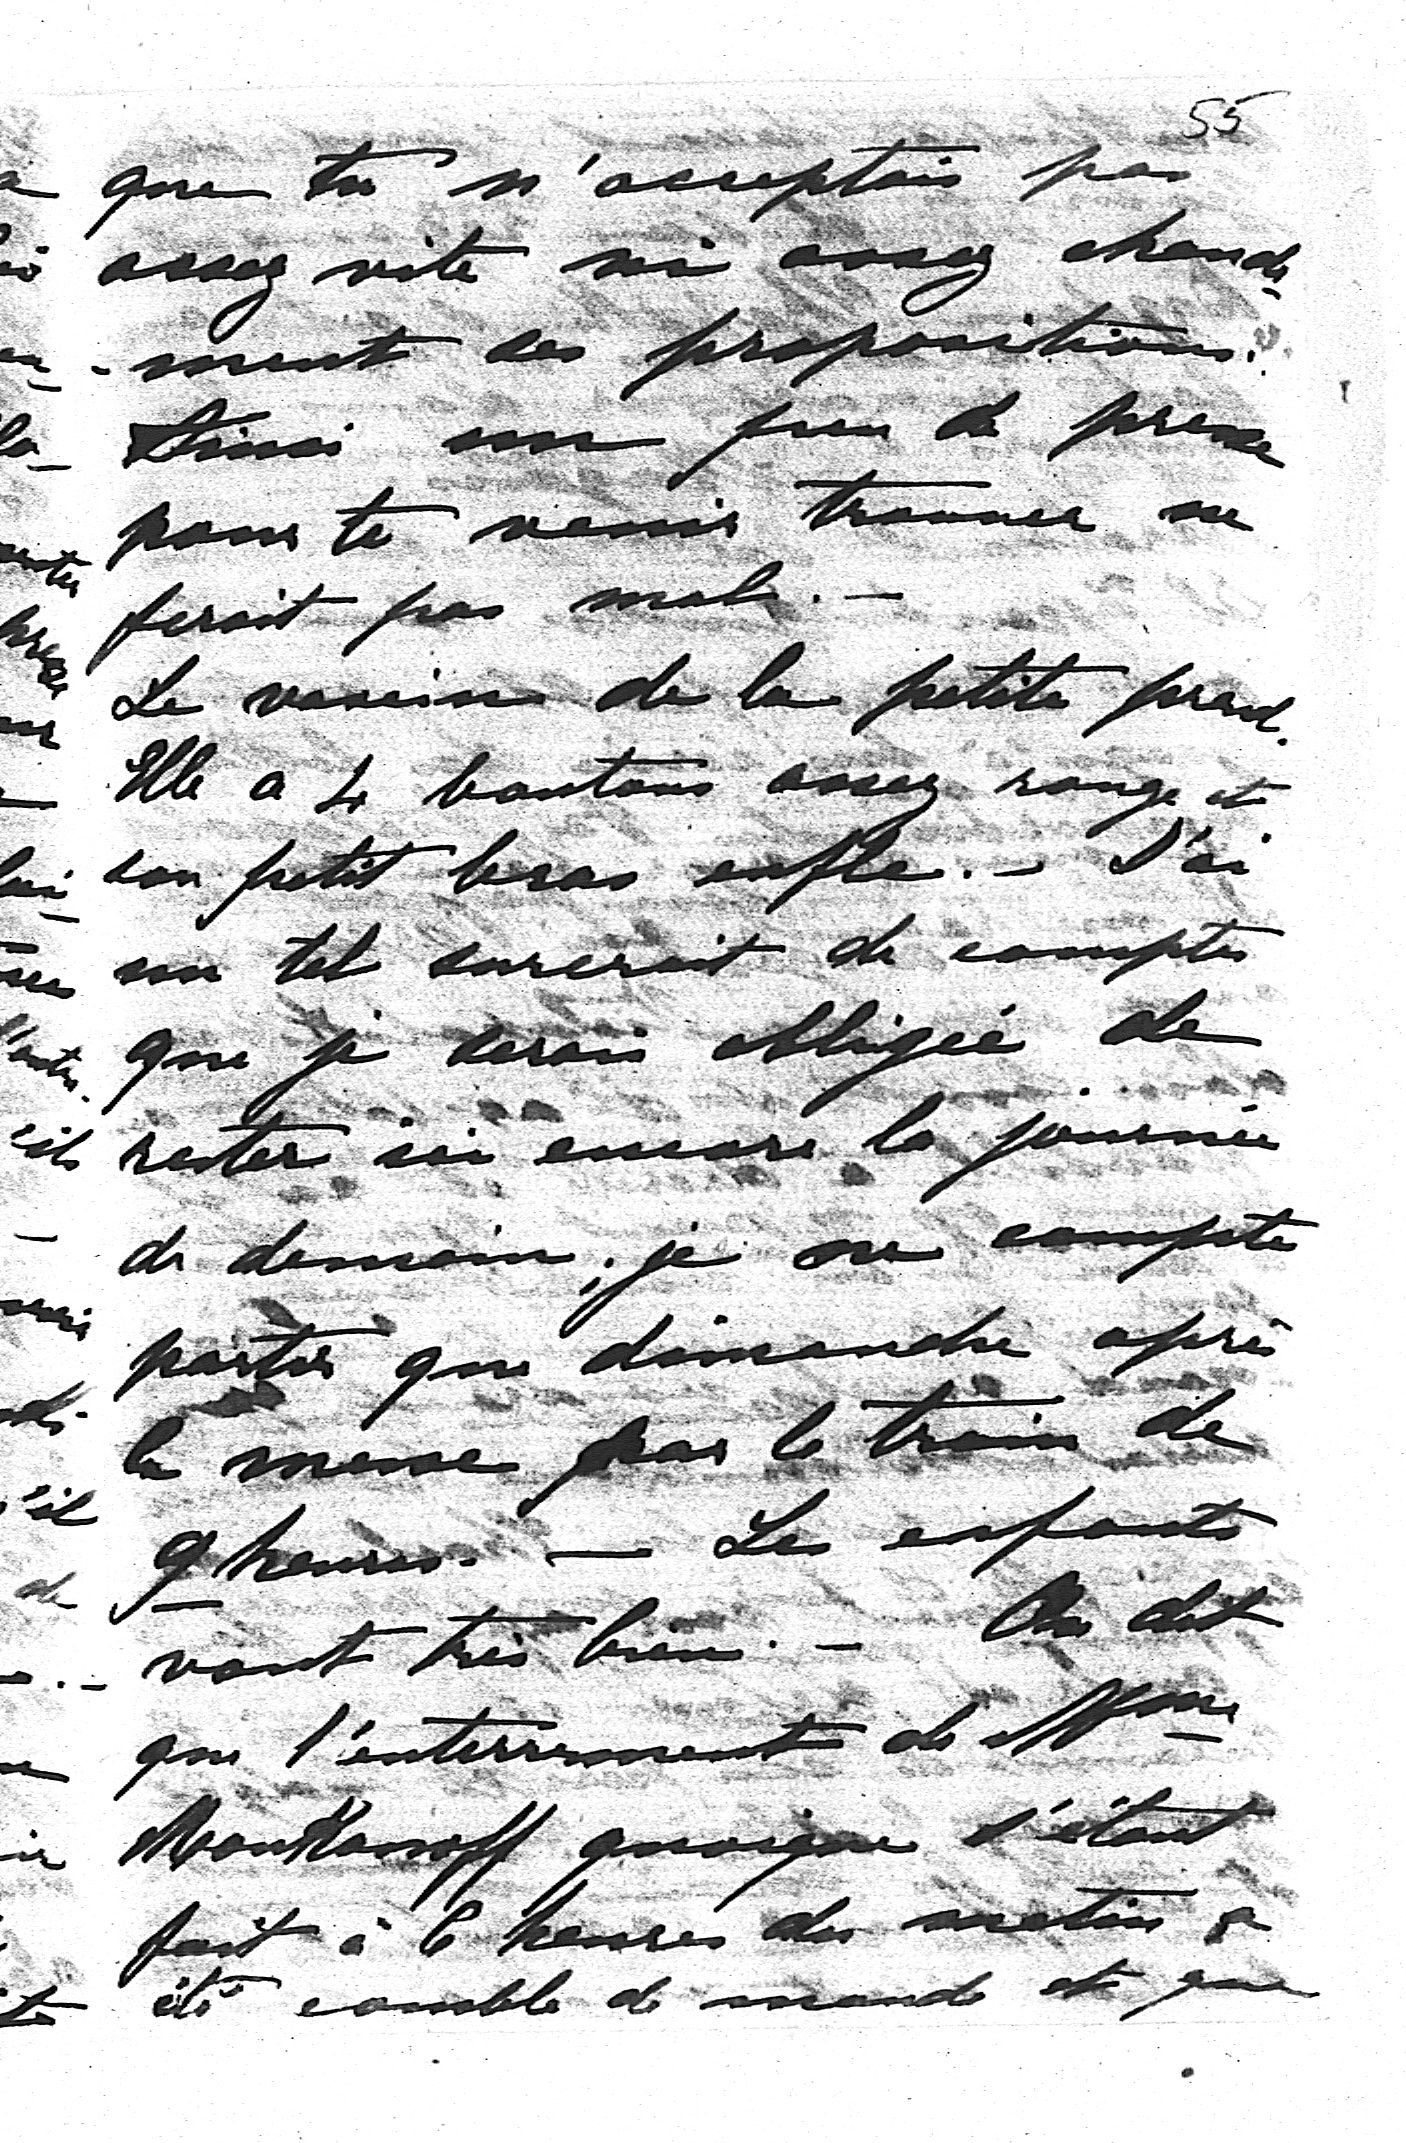 55
que tu n'acceptais pas
assez vite ni assez chaude-
-ment ses propositions.
Ainsi un peu de presse
pour te venir trouver ne
ferait pas mal. —
Le vaccin de la petite prend.
Elle a 4 boutons assez rouge et
son petit bras enfle. — J'ai
un tel surcroit de comptes
que je serai obligée de
rester ici encore la journée
de demain, je ne compte
partir que dimanche après
la messe par le train de
9 heures. — Les enfants
vont très bien. — On dit
que l'enterrement de Mme
quoique s'étant
fait à 6 heures du matin a
été comble de monde et que